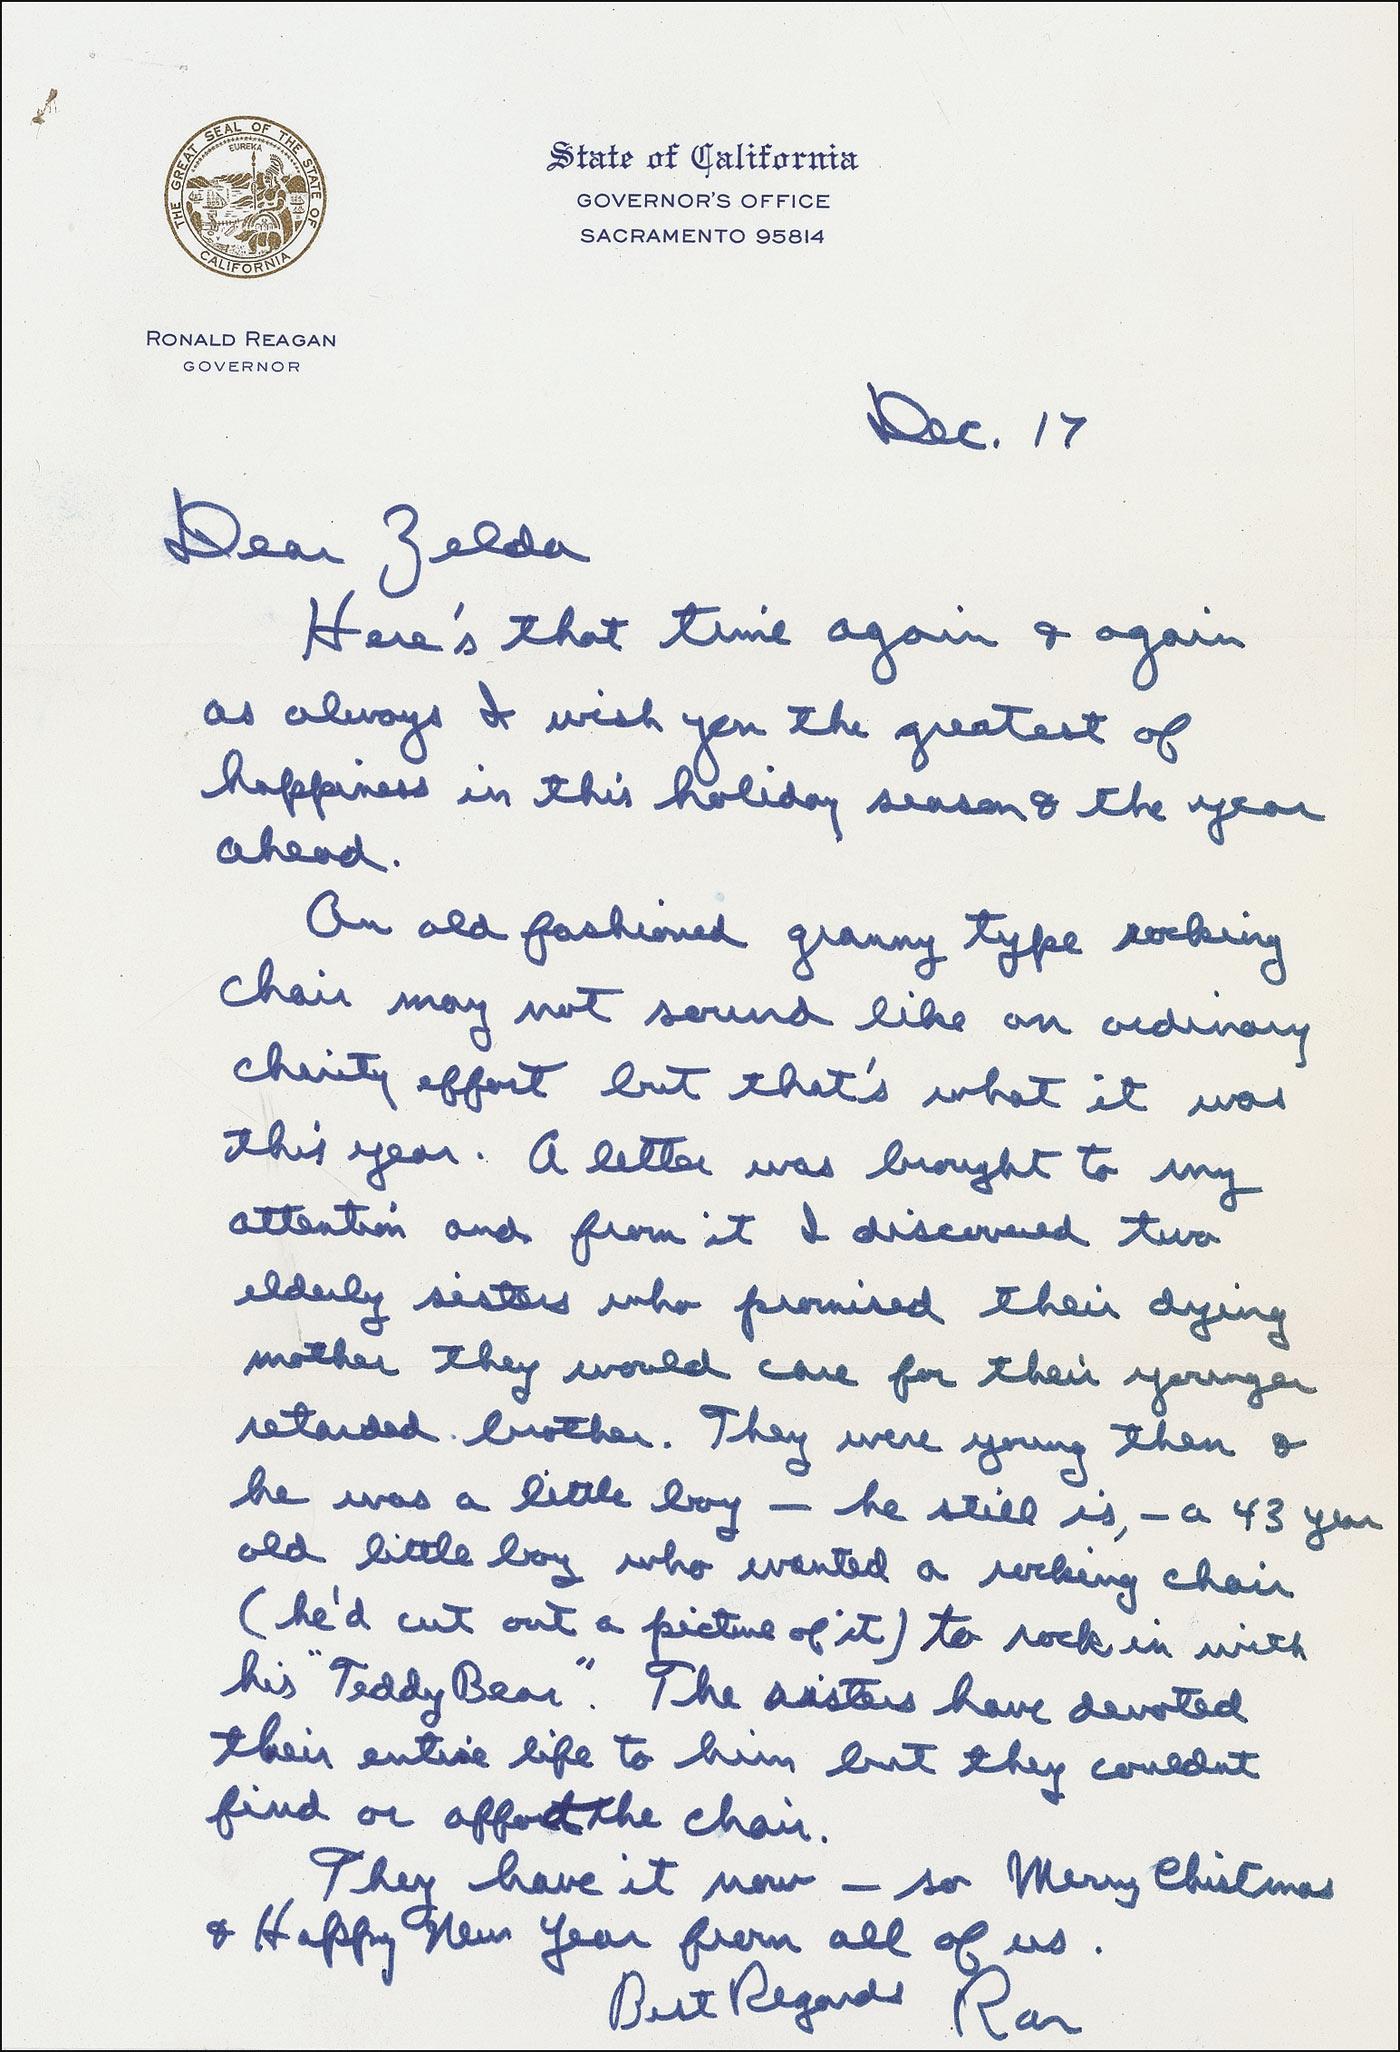 THE GREAT SEAL OF THE STATE OF CALIFORNIA
EUREKA
State of California
GOVERNOR'S OFFICE
SACRAMENTO 95814
RONALD REAGAN
GOVERNOR
Dec. 17
Dear Zelda
Here's that time again & again
as always I wish you the greatest of
happiness in this holiday season & the year
ahead.
An old fashioned granny type rocking
chair may not sound like an ordinary
charity effort but that's what it was
this year. A letter was brought to my
attention and from it I discovered two
elderly sisters who promised their dying
mother they would care for their younger
retarded brother. They were young then &
he was a little boy — he still is, – a 43 year
old little boy who wanted a rocking chair
(he'd cut out a picture of it) to rock in with
his "Teddy Bear". The sisters have devoted
their entire life to him but they couldnt
find or afford the chair.
They have it now — so Merry Christmas
& Happy New Year from all of us.
Best Regards Ron